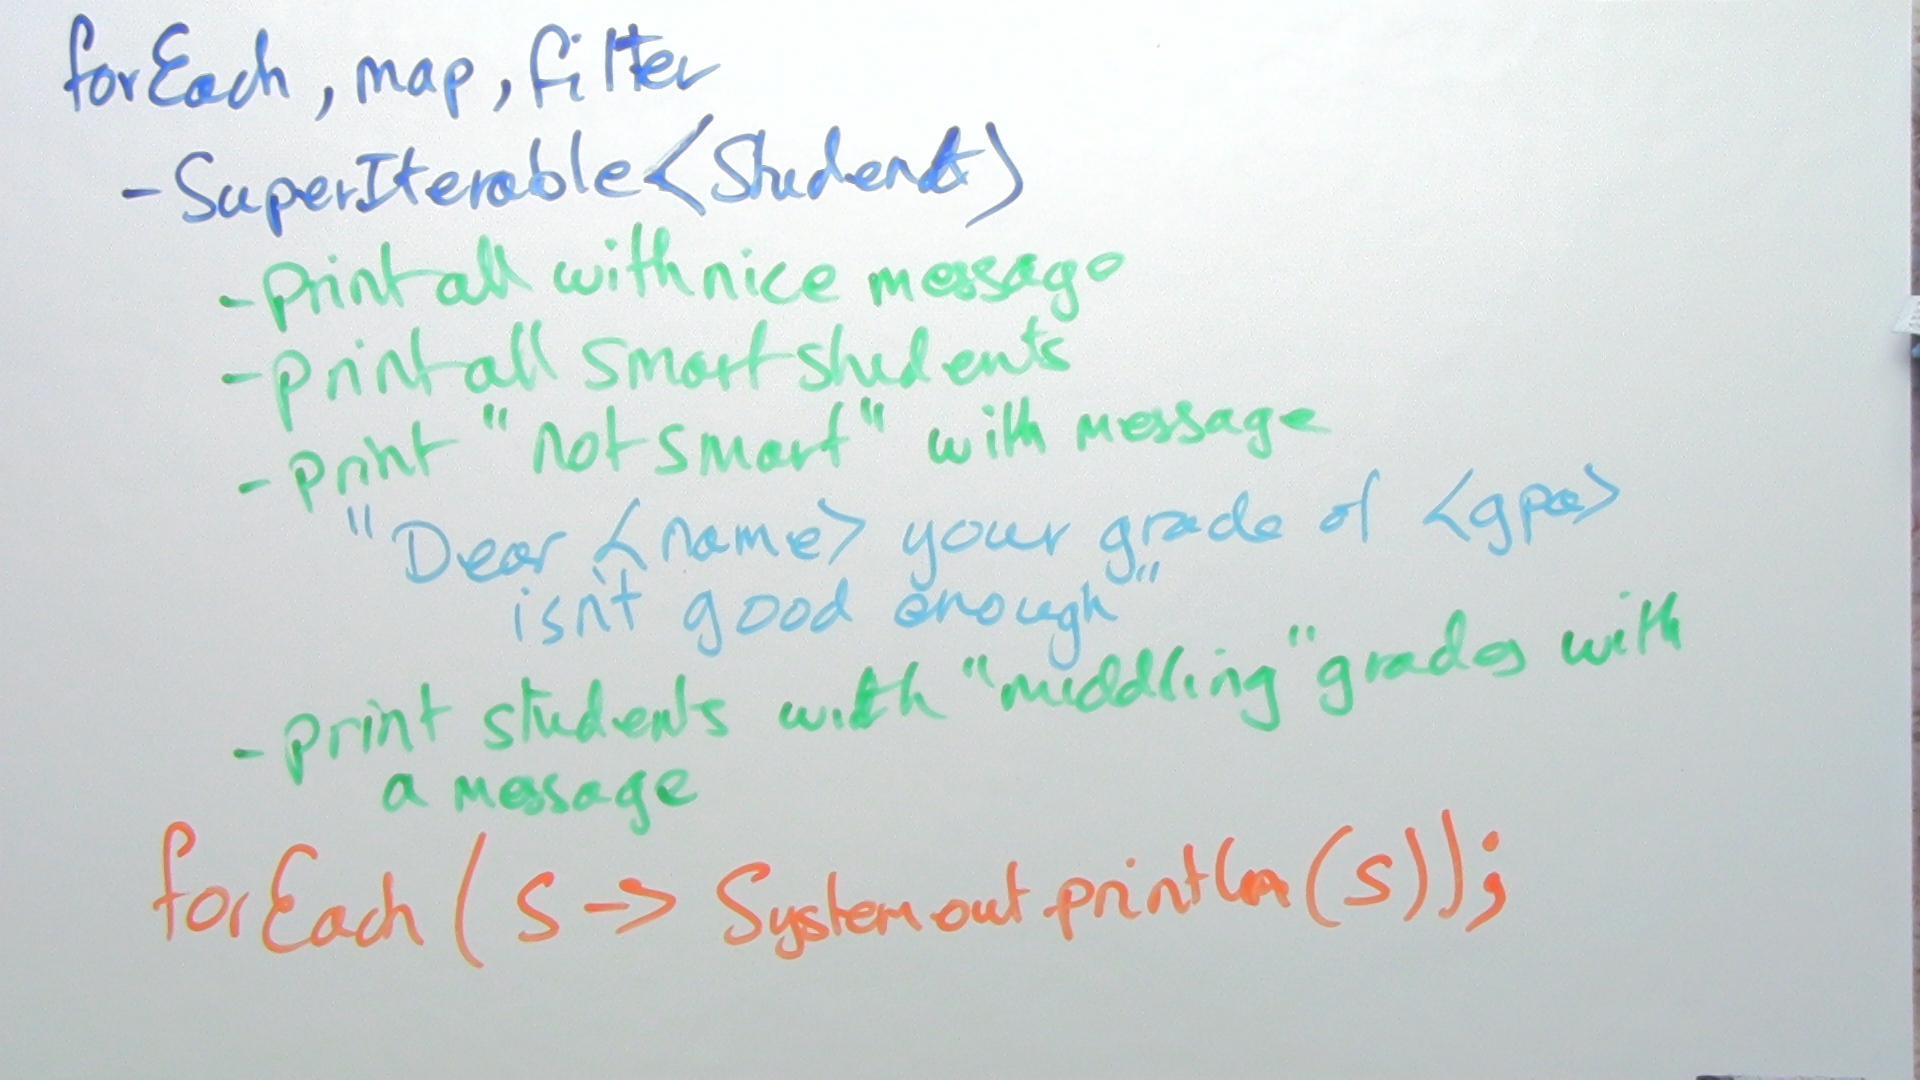 forEach, map, filter
- SuperIterable<Student>
- print all with nice message
- print all smart students
- print "not smart" with message
"Dear <name> your grade of <gpa>
isn't good enough"
- print students with "middling" grades with
a message
forEach(s -> System.out.println(s));